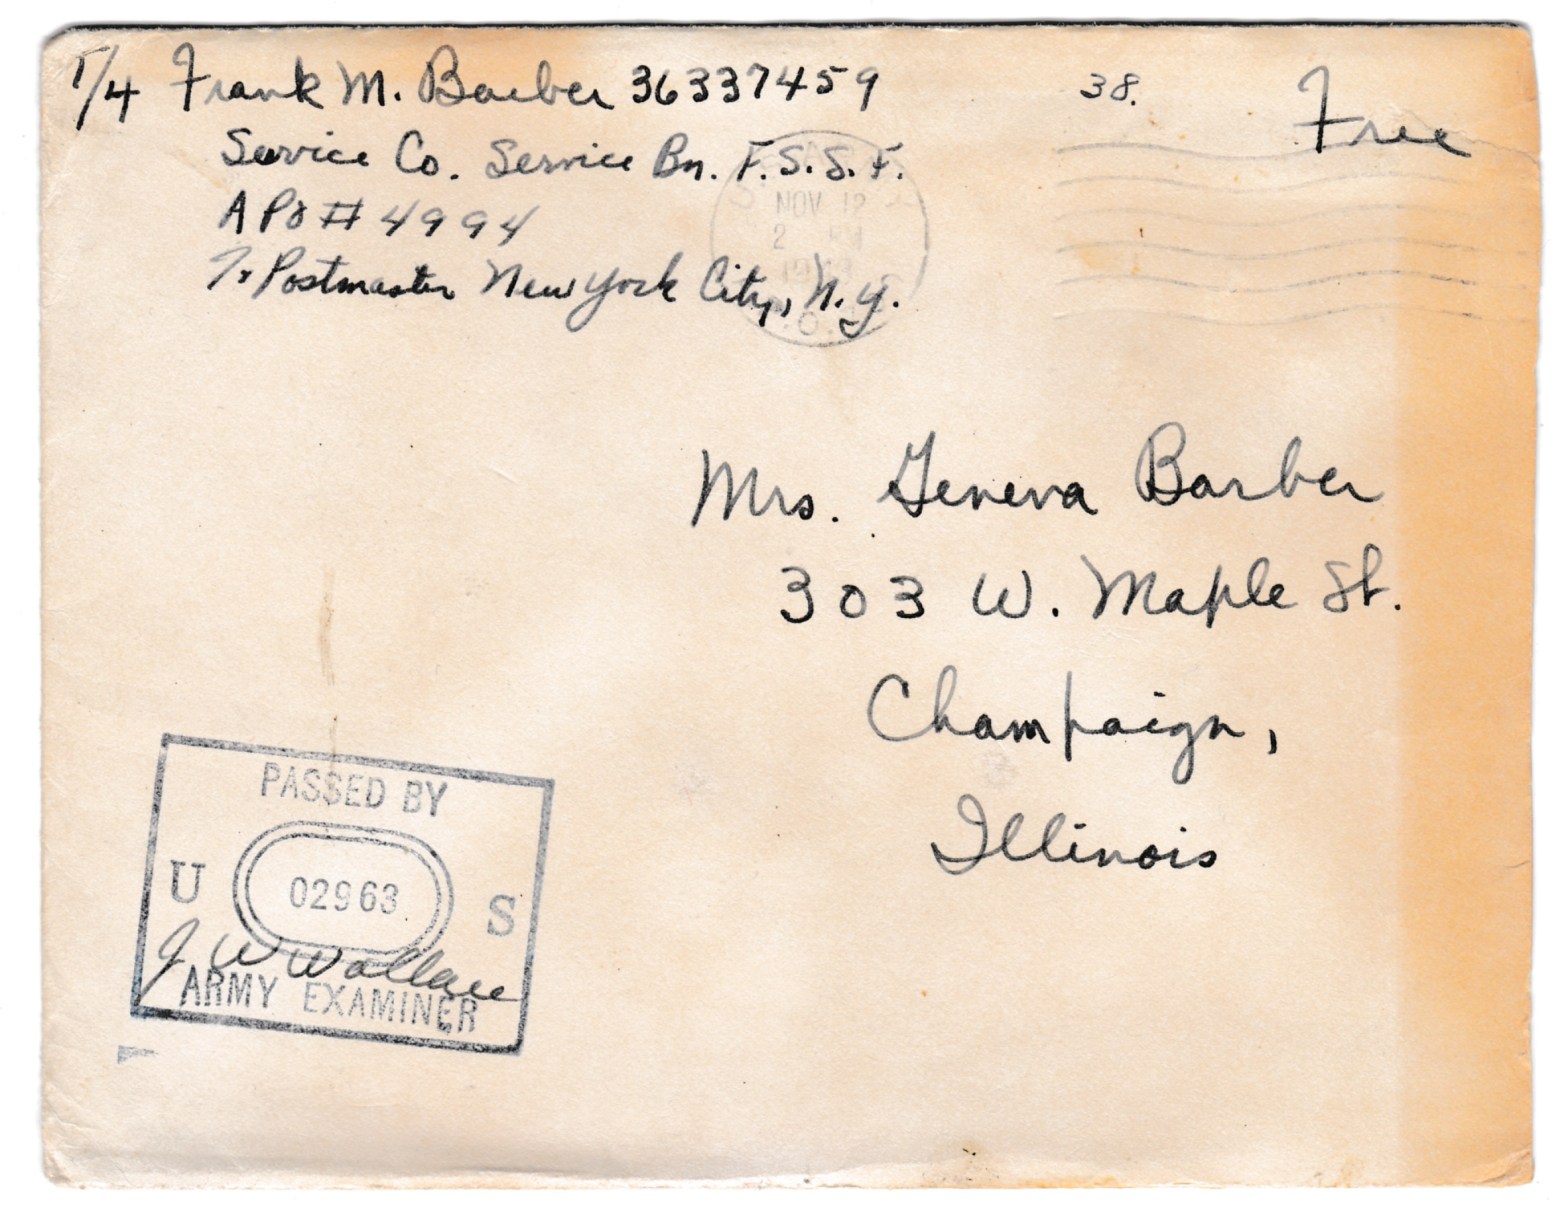 T/4 Frank M. Barber 36337459
Service Co. Service Bn. F.S.S.F.
APO # 4994
% Postmaster New York City, N.Y.
38.
Free
NOV 12
2 PM
Mrs. Geneva Barber
303 W. Maple St.
Champaign,
Illinois
PASSED BY
U 02963 S
J W Wallace
ARMY EXAMINER